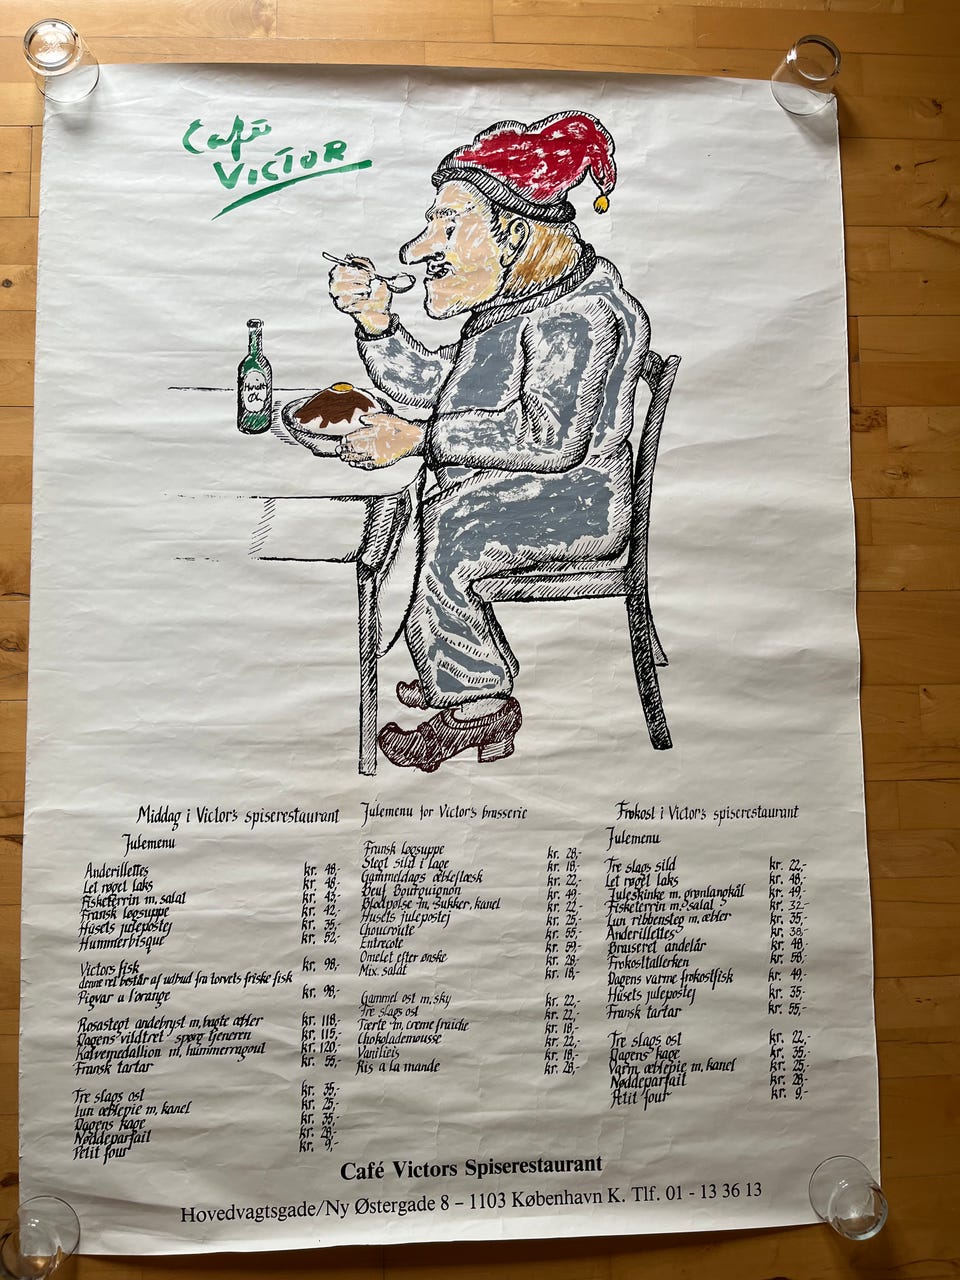 Café
VICTOR
Øl
Middag i Victor's spiserestaurant
Julemenu
Anderillettes kr. 48,-
Let røget laks kr. 48,-
Fisketerrin m, salat kr. 43,-
Fransk løgsuppe kr. 42,-
Husets julepostej kr. 35,-
Hummerbisque kr. 52,-
Victors fisk kr. 98,-
denne ret består af udbud fra torvets friske fisk
Pigvar a l'orange kr. 98,-
Rosastegt andebryst m, bagte æbler kr. 118,-
Dagens vildtret spørg tjeneren kr. 115,-
Kalvemedallion m, hummerragout kr. 120,-
Fransk tartar kr. 55,-
Tre slags ost kr. 35,-
Lun æblepie m, kanel kr. 25,-
Dagens kage kr. 35,-
Nøddeparfait kr. 28,-
Petit four kr. 9,-
Julemenu for Victor's brasserie
Fransk løgsuppe kr. 28,-
Stegt sild i lage kr. 18,-
Gammeldags æbleflæsk kr. 22,-
Beuf Bourguignon kr. 49,-
Blodpølse m, sukker, kanel kr. 22,-
Husets julepostej kr. 25,-
Choucroute kr. 55,-
Entrecote kr. 59,-
Omelet efter ønske kr. 28,-
Mix. salat kr. 18,-
Gammel ost m, sky kr. 22,-
Tre slags ost kr. 22,-
Tærte m, creme fraiche kr. 18,-
Chokolademousse kr. 22,-
Vanilieis kr. 18,-
Ris a la mande kr. 28,-
Frokost i Victor's spiserestaurant
Julemenu
Tre slags sild kr. 22,-
Let røget laks kr. 48,-
Juleskinke m, grønlangkål kr. 49,-
Fisketerrin m, salat kr. 32,-
Lun ribbensteg m, æbler kr. 35,-
Anderillettes kr. 38,-
Braiseret andelår kr. 48,-
Frokosttallerken kr. 58,-
Dagens varme frokostfisk kr. 49,-
Husets julepostej kr. 35,-
Fransk tartar kr. 55,-
Tre slags ost kr. 22,-
Dagens kage kr. 35,-
Varm æblepie m, kanel kr. 25,-
Nøddeparfait kr. 28,-
Petit four kr. 9,-
Café Victors Spiserestaurant
Hovedvagtsgade/Ny Østergade 8 – 1103 København K. Tlf. 01 - 13 36 13